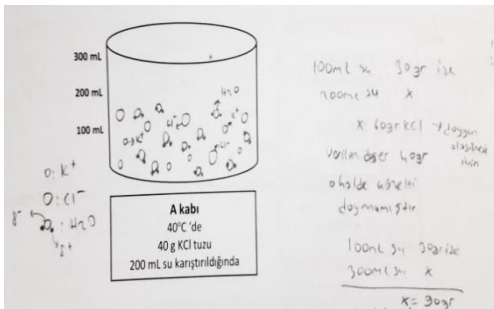 300 mL
200 mL
100 mL
H2O
K+
Cl-
K+
Cl-
O: K+
O: Cl-
: H2O
δ+
A kabı
40°C 'de
40 g KCl tuzu
200 mL su karıştırıldığında
100mL su 30gr ise
200mL su x
x: 60gr KCl doygun
olabilmesi
için
verilen değer 40gr
o halde çözelti
doymamıştır
100mL su 30gr ise
300mL su x
x= 30gr